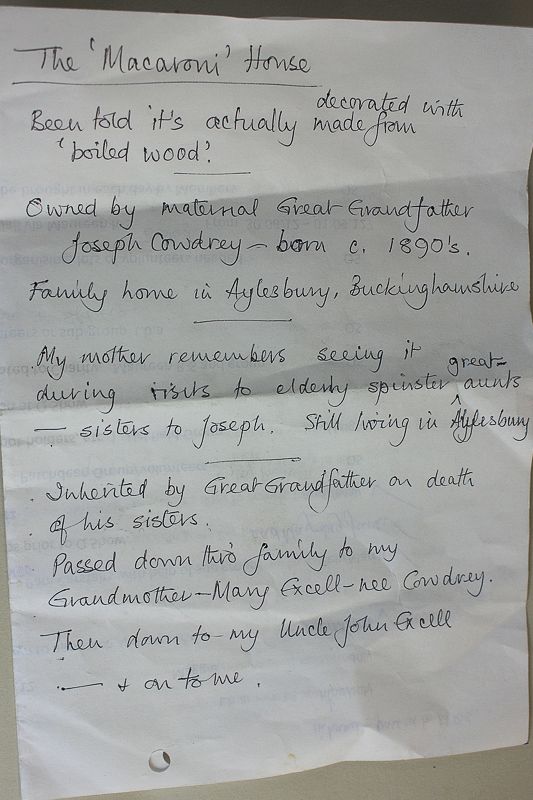 The 'Macaroni' House
Been told it's actually made from decorated with
'boiled wood'.
Owned by maternal Great Grandfather
Joseph Cowdrey – born c. 1890's.
Family home in Aylesbury, Buckinghamshire
My mother remembers seeing it
during visits to elderly spinster great-aunts
— sisters to Joseph. Still living in Aylesbury
Inherited by Great Grandfather on death
of his sisters.
Passed down thro' family to my
Grandmother – Mary Excell – nee Cowdrey.
Then down to my Uncle John Excell
— & on to me.